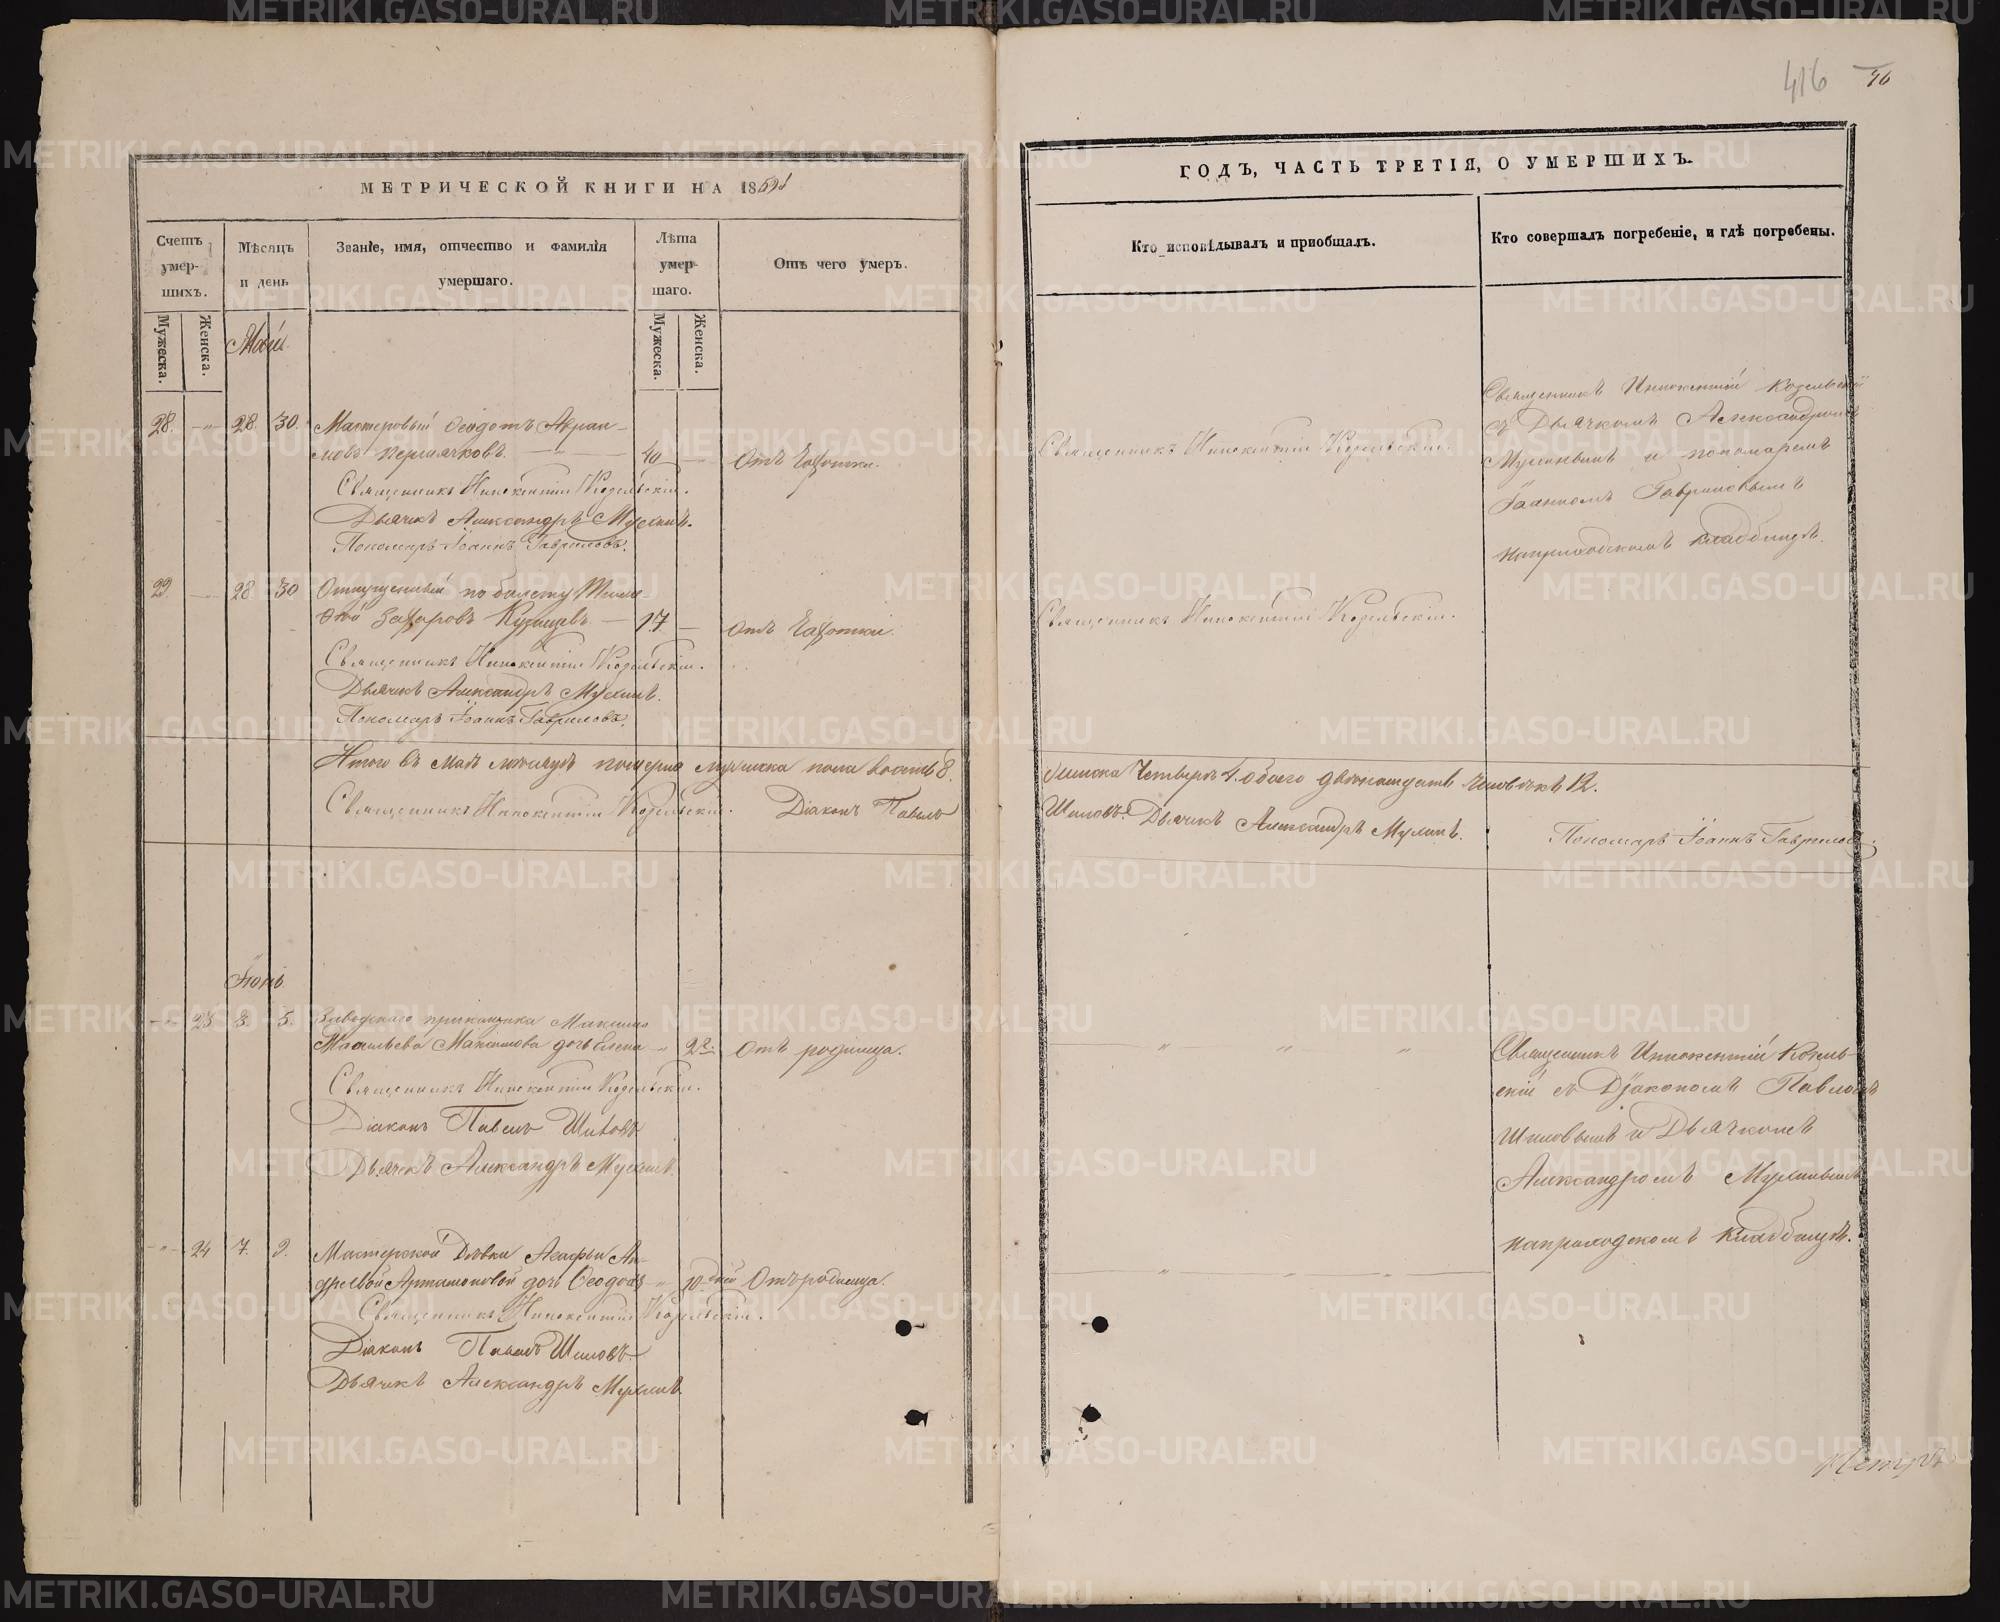 416 46
МЕТРИЧЕСКОЙ КНИГИ НА 18
ГОДЪ, ЧАСТЬ ТРЕТІЯ, О УМЕРШИХЪ.
Счетъ умер-шихъ.
Мѣсяцъ и день
Званіе, имя, отчество и фамилія
умершаго.
Лѣта умер-шаго.
Отъ чего умеръ.
Кто исповѣдывалъ и приобщалъ.
Кто совершалъ погребеніе, и гдѣ погребены.
Мужеска.
Женска.
Мужеска.
Женска.
Маій.
28. 28. 30. Мастеровый Ѳеодотъ Авраа-
мовъ Пермячковъ. 40 Отъ Чахотки.
Священникъ Иннокентій Козельскій.
Дьячекъ Александръ Мухинъ.
Пономарь Іоаннъ Гавриловъ.
Священникъ Иннокентій Козельскій.
Священникъ Иннокентій Козельскій
съ Дьячкомъ Александромъ
Мухинымъ и пономаремъ
Іоанномъ Гавриловымъ
на приходскомъ кладбищѣ.
29. 28 30 Отпущенный по билету
Захаровъ Кузнецовъ 17 Отъ Чахотки.
Священникъ Иннокентій Козельскій.
Дьячекъ Александръ Мухинъ.
Пономарь Іоаннъ Гавриловъ.
Священникъ Иннокентій Козельскій.
Итого въ Маѣ мѣсяцѣ померло мужеска пола восемь 8.
женска Четверо 4. обоего двѣнадцать человѣкъ 12.
Священникъ Иннокентій Козельскій. Діаконъ Павелъ
Шиловъ. Дьячекъ Александръ Мухинъ. Пономарь Іоаннъ Гавриловъ.
Іюнь.
23 3. 5. Заводскаго прикащика Максима
Васильева Максимова дочь Елена 22. Отъ родимца.
Священникъ Иннокентій Козельскій.
Діаконъ Павелъ Шиловъ.
Дьячекъ Александръ Мухинъ.
Священникъ Иннокентій Козель-
скій съ Діакономъ Павломъ
Шиловымъ и Дьячкомъ
Александромъ Мухинымъ
на приходскомъ Кладбищѣ.
24 7. 9. Мастерской Дѣвки Агафьи Ан-
дреевой Артамоновой дочь Ѳеодора 10 дней Отъ родимца.
Священникъ Иннокентій Козельскій.
Діаконъ Павелъ Шиловъ.
Дьячекъ Александръ Мухинъ.
METRIKI.GASO-URAL.RU